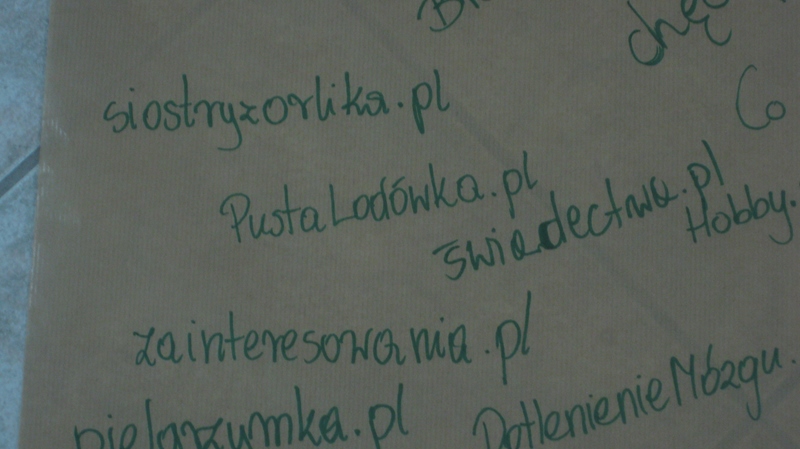 chę
Co
siostryzorlika.pl
PustaLodówka.pl
świadectwa.pl
Hobby.
zainteresowania.pl
DotlenienieMózgu.